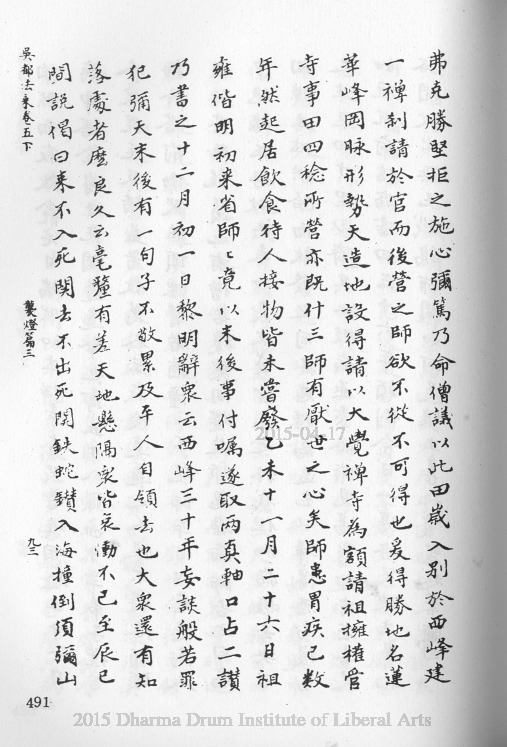 弗克勝堅拒之施心彌篤乃命僧議以此田歲入別於西峰建
一禪刹請於官而後營之師欲不從不可得也爰得勝地名蓮
華峰岡脉形勢天造地設得請以大覺禪寺為額請祖雍權管
寺事田四稔所營亦既什三師有厭世之心矣師患胃疾已數
年然起居飲食待人接物皆未嘗廢乙未十一月二十六日祖
雍偕明初来省師〻竟以末後事付嘱遂取两真軸口占二讃
乃書之十二月初一日黎明辭衆云西峰三十年妄談般若罪
犯彌天末後有一句子不敬累及平人自領去也大衆還有知
落處者麽良久云毫釐有差天地懸隔衆皆哀慟不已至辰巳
間説偈曰来不入死関去不出死関鉄蛇鑽入海撞倒須彌山
吳都法乗卷五下
襲燈篇三
九三
491
2015-04-17
2015 Dharma Drum Institute of Liberal Arts